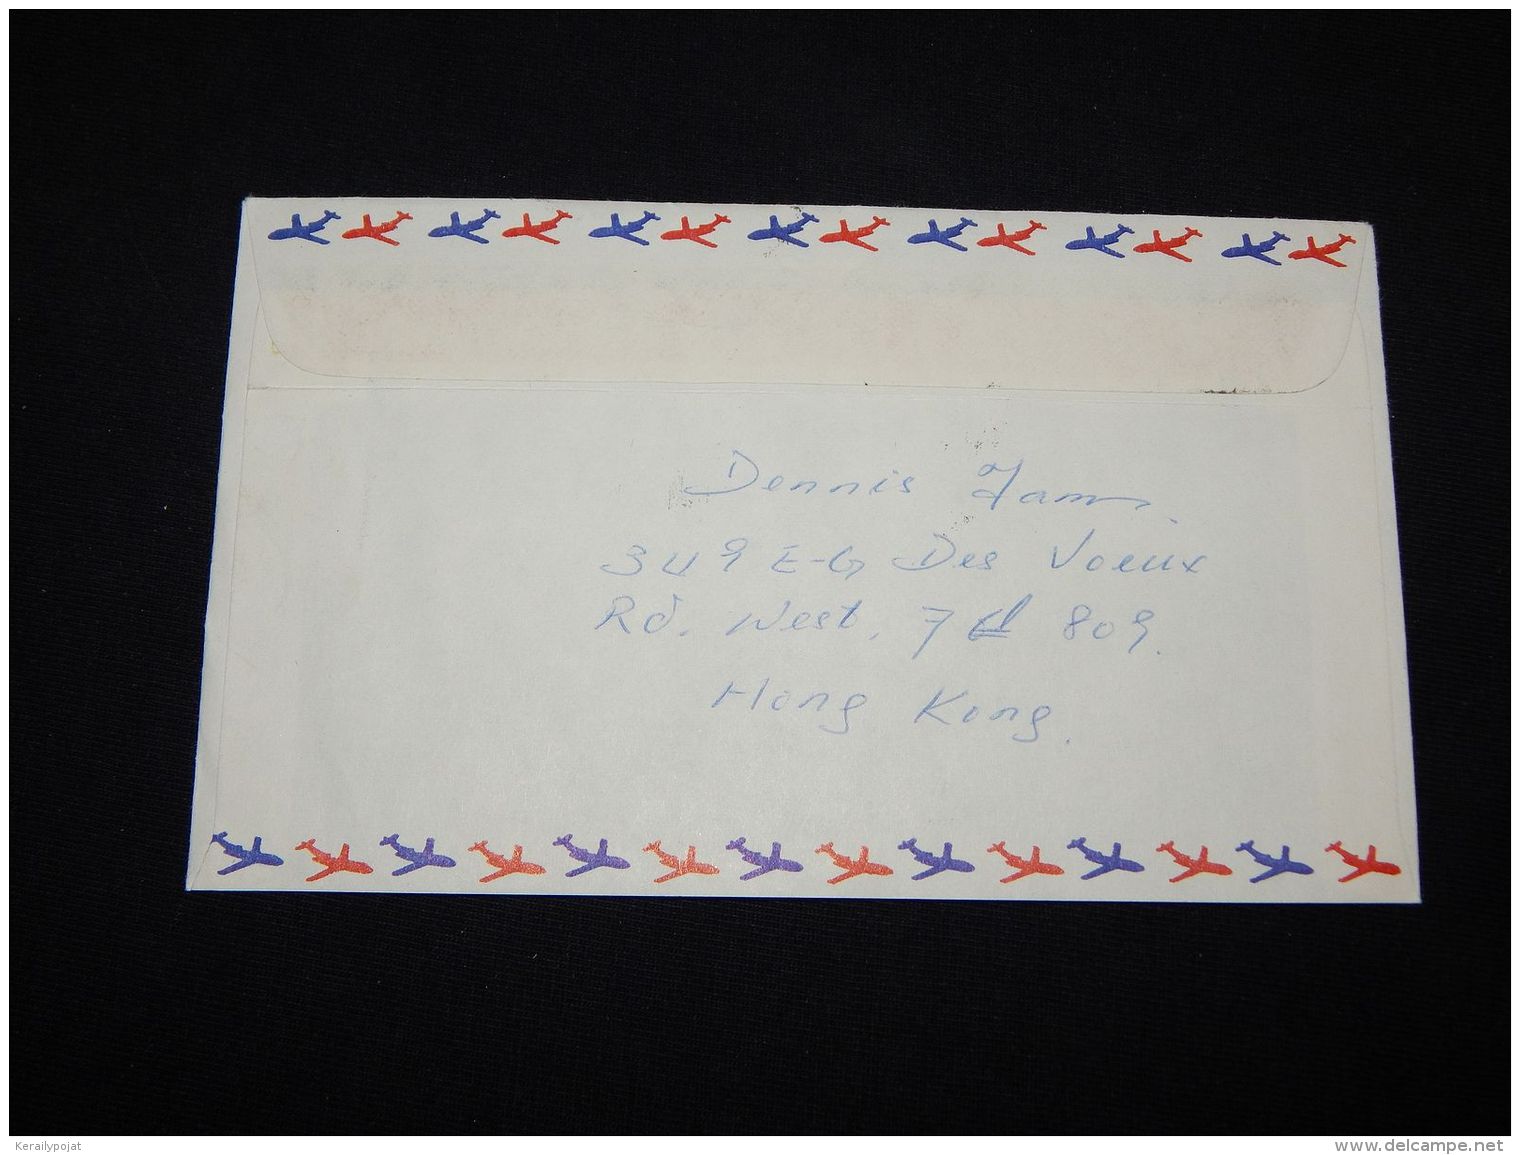 Dennis
349 E-G Des Voeux
Rd. West, 7 809.
Hong Kong.
Kerailypojat
www.delcampe.net